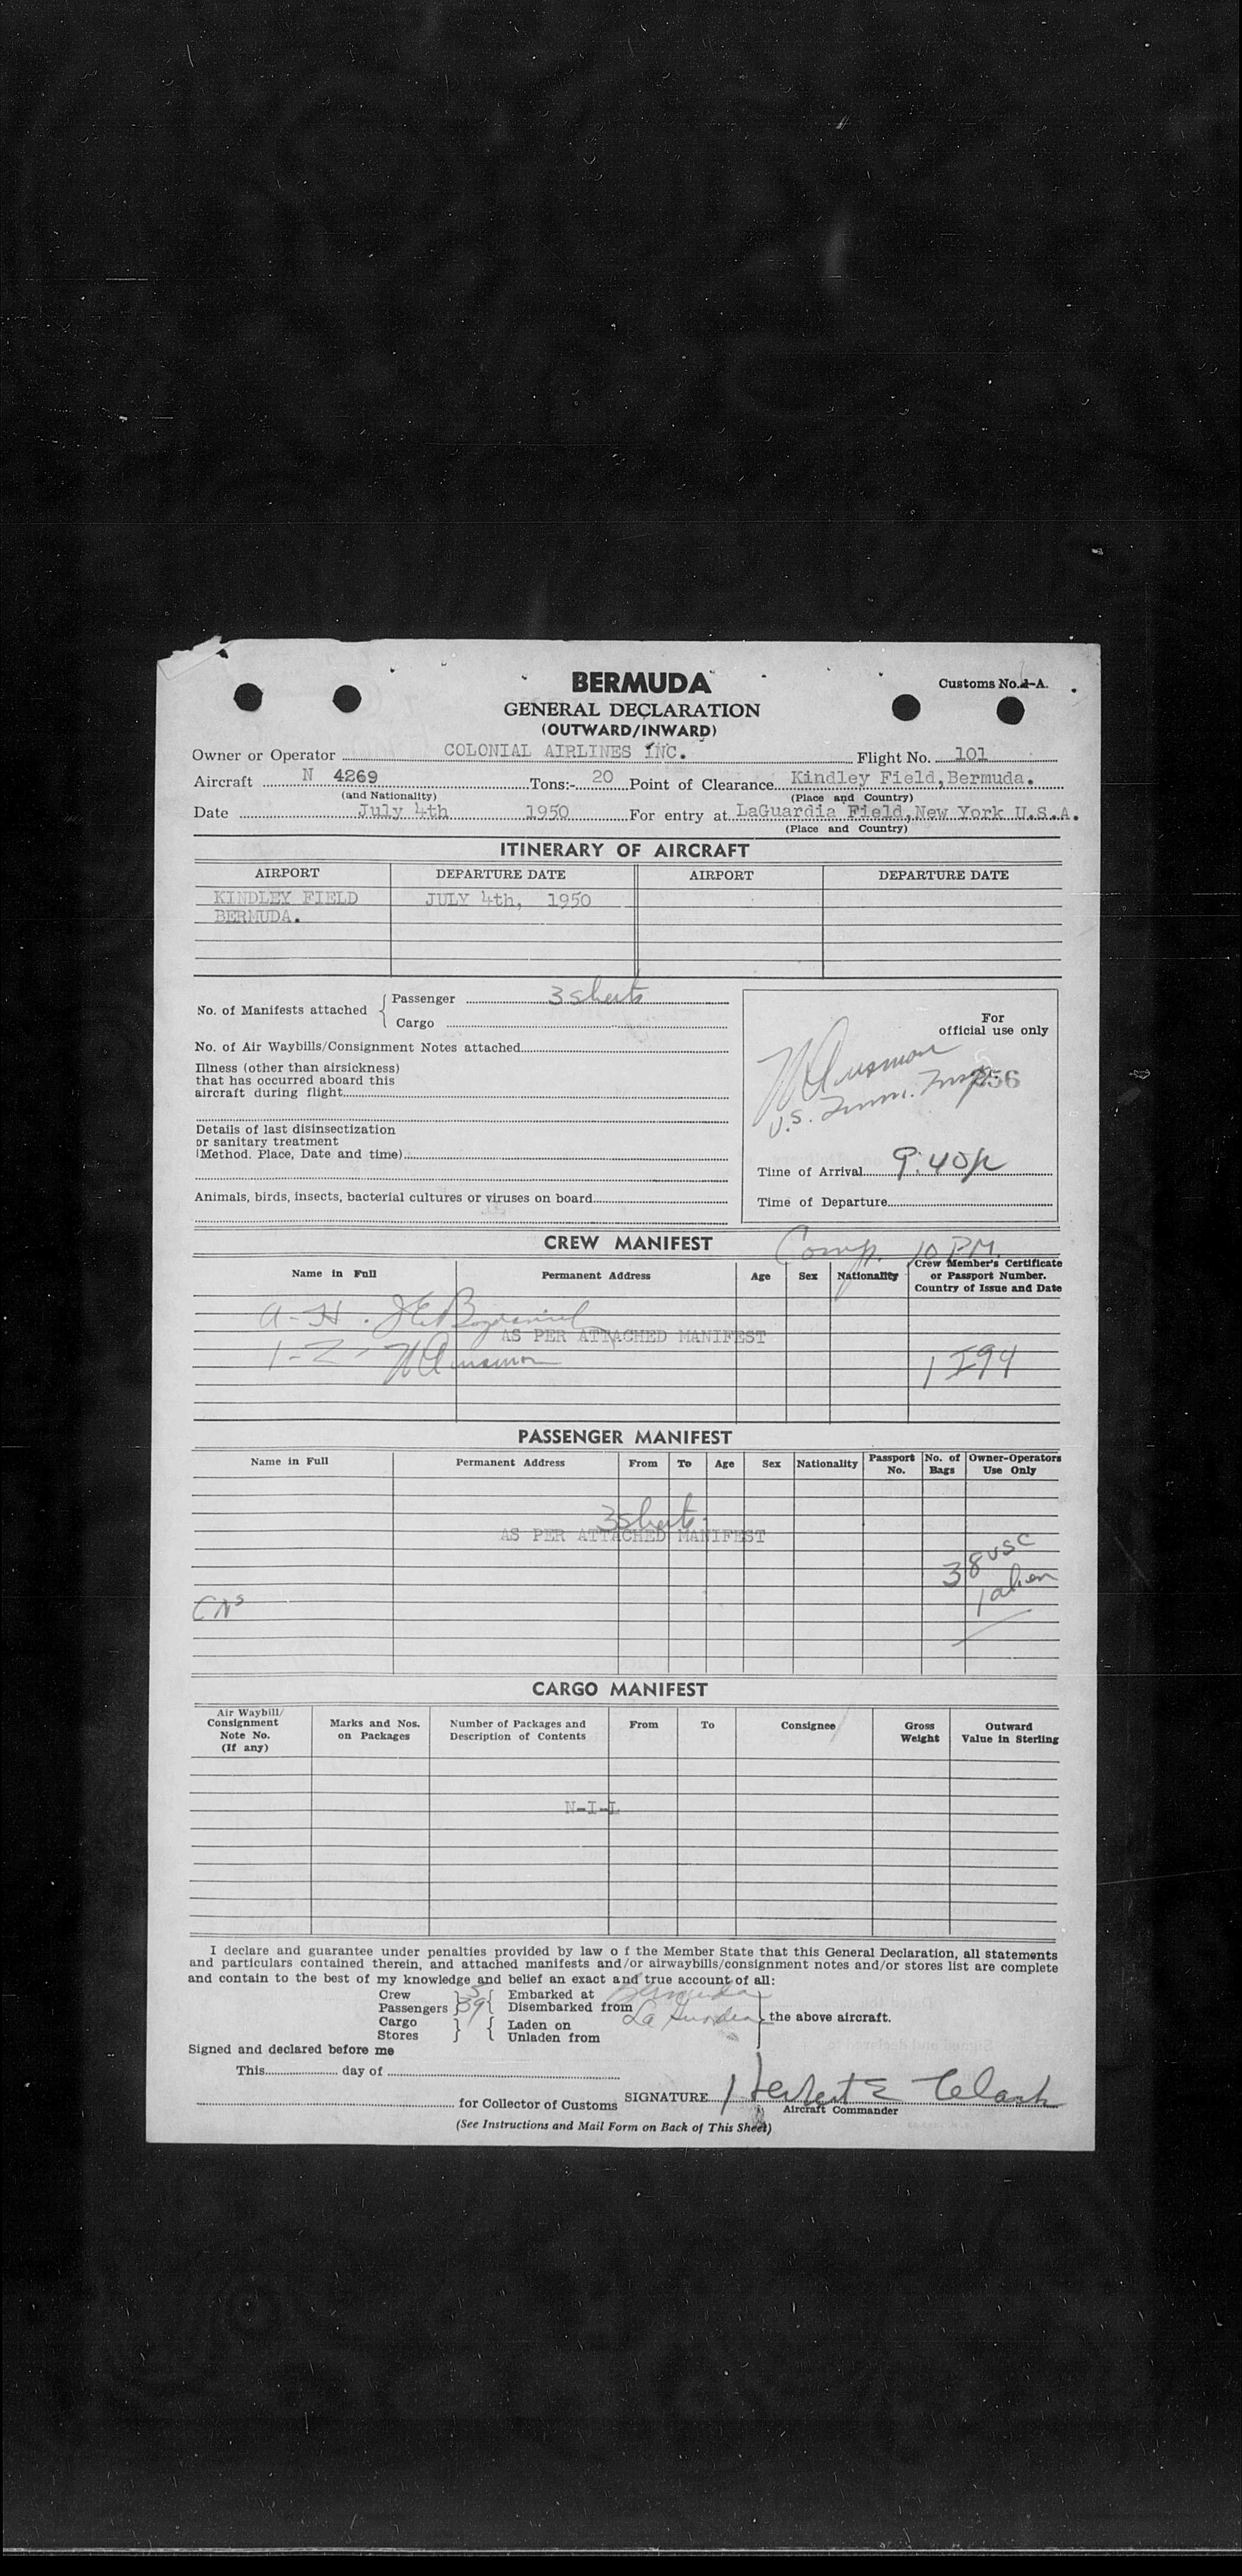 BERMUDA
Customs No. 1-A.
GENERAL DECLARATION
(OUTWARD/INWARD)
Owner or Operator COLONIAL AIRLINES INC. Flight No. 101
Aircraft N 4269 Tons:- 20 Point of Clearance Kindley Field, Bermuda.
(and Nationality) (Place and Country)
Date July 4th 1950 For entry at LaGuardia Field, New York U.S.A.
(Place and Country)
ITINERARY OF AIRCRAFT
AIRPORT DEPARTURE DATE AIRPORT DEPARTURE DATE
KINDLEY FIELD JULY 4th, 1950
BERMUDA.
No. of Manifests attached { Passenger 3 sheets
Cargo
No. of Air Waybills/Consignment Notes attached
Illness (other than airsickness)
that has occurred aboard this
aircraft during flight
Details of last disinsectization
or sanitary treatment
(Method. Place, Date and time)
Animals, birds, insects, bacterial cultures or viruses on board
For
official use only
256
U.S. Imm. Insp.
Time of Arrival 9:40p
Time of Departure
CREW MANIFEST
Comp. 10 PM.
Name in Full Permanent Address Age Sex Nationality Crew Member's Certificate
or Passport Number.
Country of Issue and Date
A-H.
AS PER ATTACHED MANIFEST
1-Z-
1 I94
PASSENGER MANIFEST
Name in Full Permanent Address From To Age Sex Nationality Passport No. No. of Bags Owner-Operators Use Only
3 sheets
AS PER ATTACHED MANIFEST
38 USC
1 alien
CARGO MANIFEST
Air Waybill/
Consignment
Note No.
(If any)
Marks and Nos.
on Packages
Number of Packages and
Description of Contents
From To Consignee
Gross
Weight
Outward
Value in Sterling
N-I-L
I declare and guarantee under penalties provided by law o f the Member State that this General Declaration, all statements
and particulars contained therein, and attached manifests and/or airwaybills/consignment notes and/or stores list are complete
and contain to the best of my knowledge and belief an exact and true account of all:
Crew 5 Embarked at Bermuda
Passengers 39 Disembarked from La Guardia the above aircraft.
Cargo Laden on
Stores Unladen from
Signed and declared before me
This day of
for Collector of Customs SIGNATURE Herbert E Clark
Aircraft Commander
(See Instructions and Mail Form on Back of This Sheet)